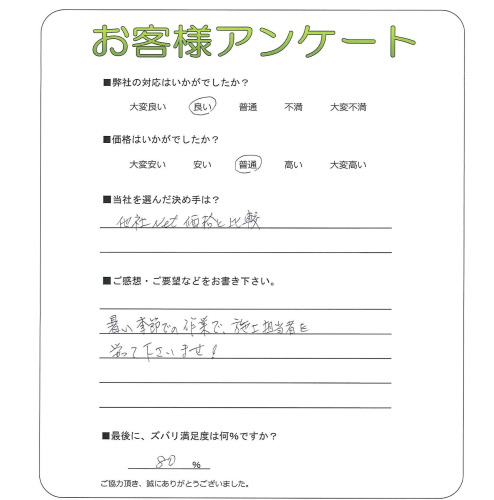 お客様アンケート
■弊社の対応はいかがでしたか？
大変良い 良い 普通 不満 大変不満
■価格はいかがでしたか？
大変安い 安い 普通 高い 大変高い
■当社を選んだ決め手は？
他社Net価格と比較
■ご感想・ご要望などをお書き下さい。
暑い季節での作業で、施工担当者を
労って下さいませ！
■最後に、ズバリ満足度は何%ですか？
80 %
ご協力頂き、誠にありがとうございました。